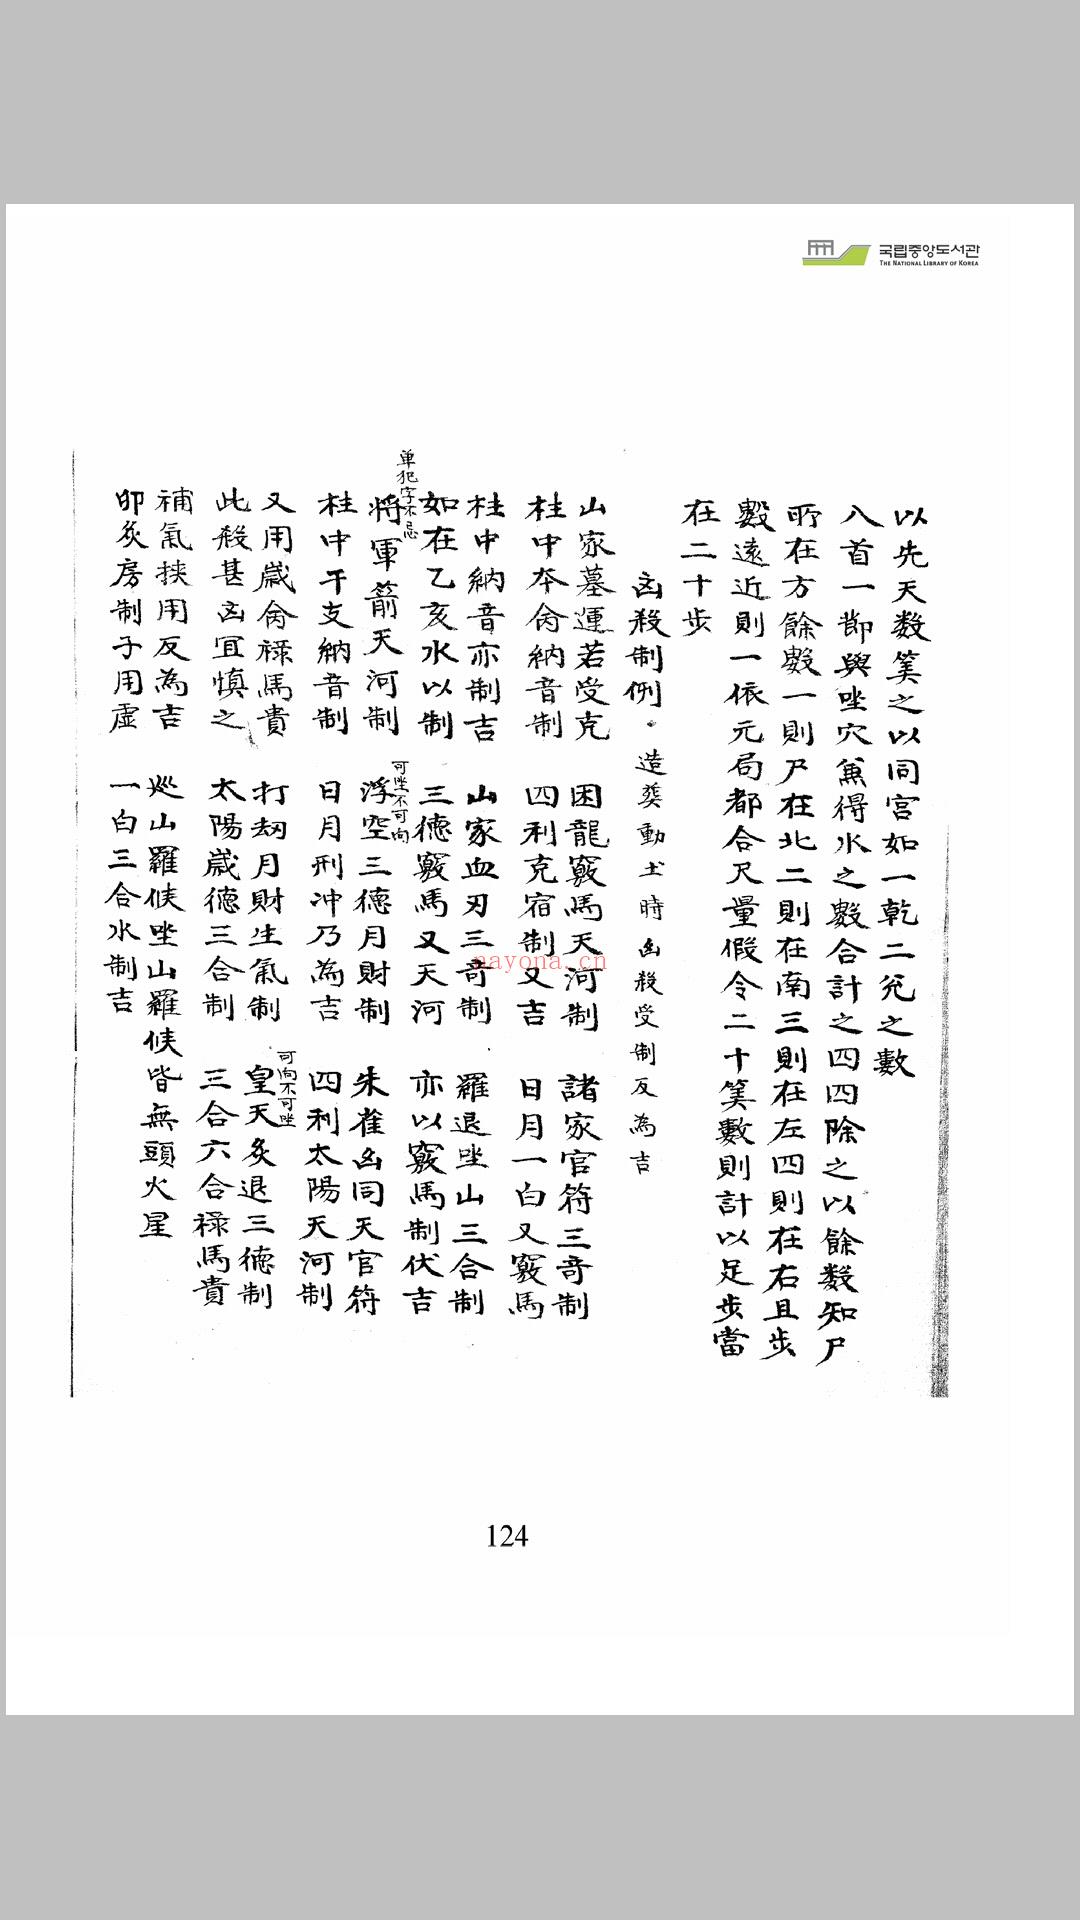 국립중앙도서관
THE NATIONAL LIBRARY OF KOREA
以先天数筭之以同宮如一乾二兊之數
八首一節與坐穴兼得水之數合計之四四除之以餘数知尸
所在方餘數一則尸在北二則在南三則在左四則在右且步
數遠近則一依元局都合尺量假令二十筭數則計以足步當
在二十步
凶殺制例·造葬動土時凶殺受制反為吉
山家墓運若受克 困龍竅馬天河制 諸家官符三竒制
柱中本命納音制 四利克宿制又吉 日月一白又竅馬
柱中納音亦制吉 山家血刃三竒制 羅退坐山三合制
如在乙亥水以制 三德竅馬又天河 亦以竅馬制伏吉
单犯字不忌
將軍箭天河制 浮空三德月財制 朱雀凶同天官符
可坐不可向
柱中干支納音制 日月刑冲乃為吉 四利太陽天河制
又用歲命祿馬貴 打刼月財生氣制 皇天灸退三德制
可向不可坐
此殺甚凶宜慎之 太陽歲德三合制 三合六合祿馬貴
補氣挾用反為吉 巡山羅候坐山羅候皆無頭火星
卯灸房制子用虛 一白三合水制吉
nayona.cn
124